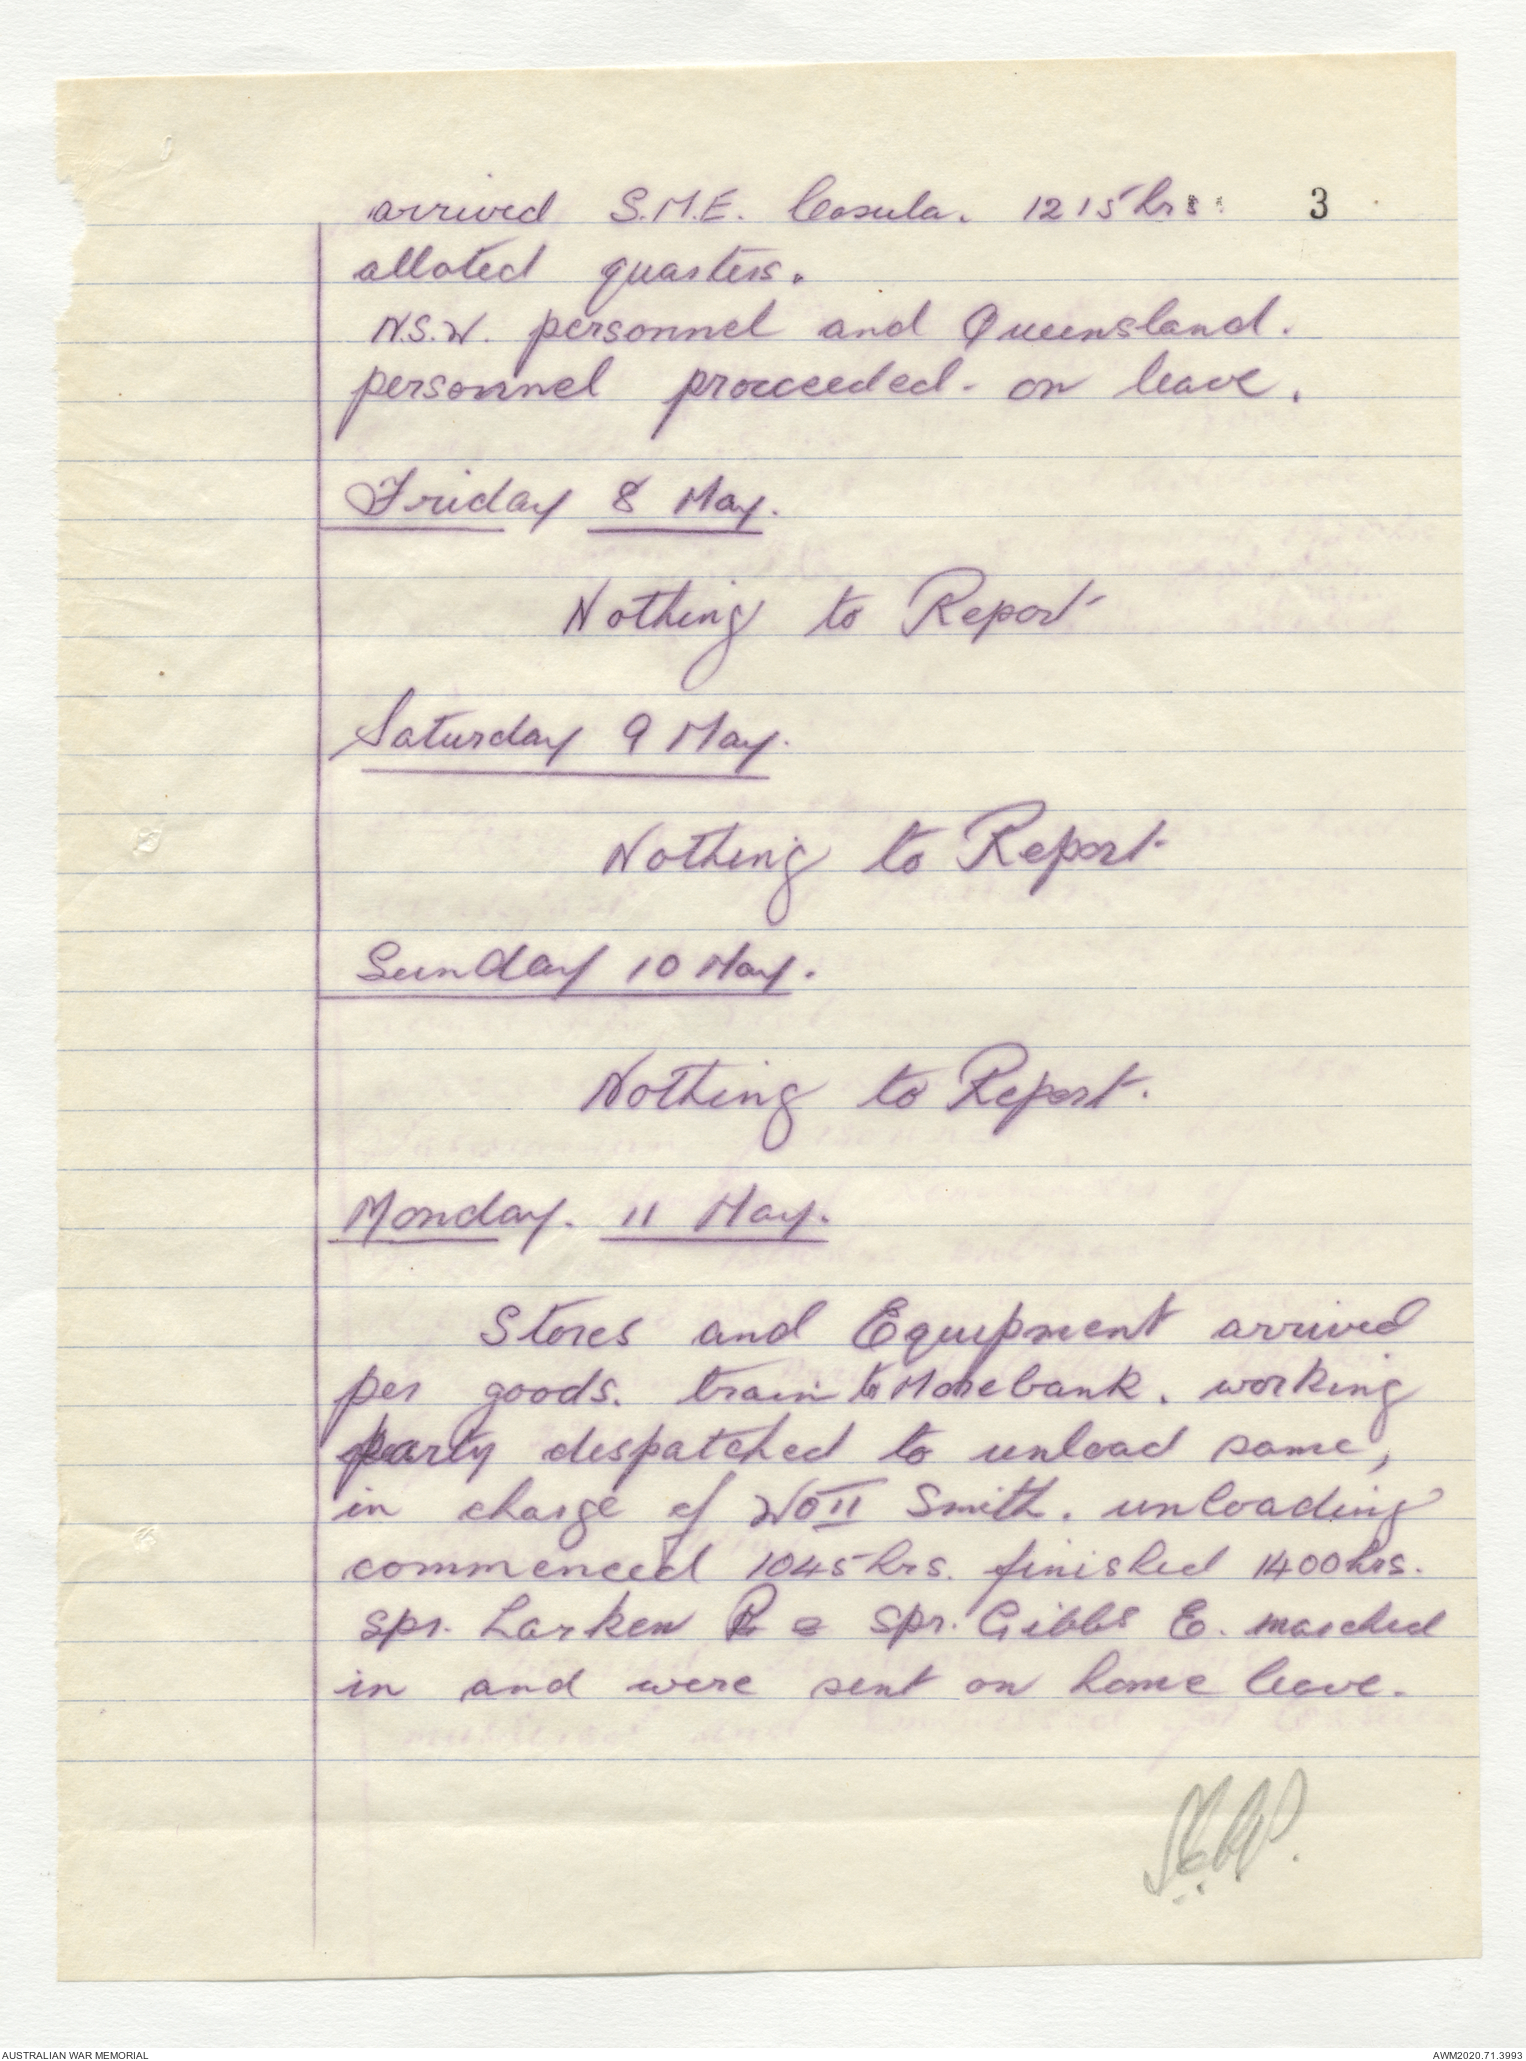 arrived S.M.E. Casula. 1215hrs. 3
alloted quarters.
N.S.W. personnel and Queensland.
personnel proceeded. on leave.
Friday 8 May.
Nothing to Report
Saturday 9 May.
Nothing to Report.
Sunday 10 May.
Nothing to Report.
Monday. 11 May.
Stores and Equipment arrived
per goods. train to Morebank. working
party despatched to unload same,
in charge of WOII Smith. unloading
commenced 1045hrs. finished 1400hrs.
spr. Larken R & Spr. Gibbs E. marched
in and were sent on home leave.
AUSTRALIAN WAR MEMORIAL
AWM2020.71.3993